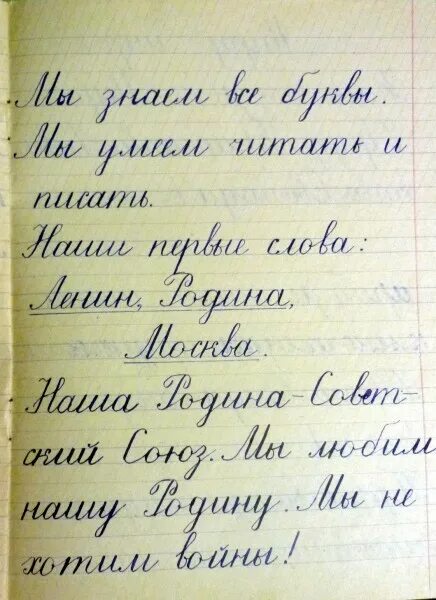 Мы знаем все буквы.
Мы умеем читать и
писать.
Наши первые слова:
Ленин, Родина,
Москва.
Наша Родина-Совет-
ский Союз. Мы любим
нашу Родину. Мы не
хотим войны!